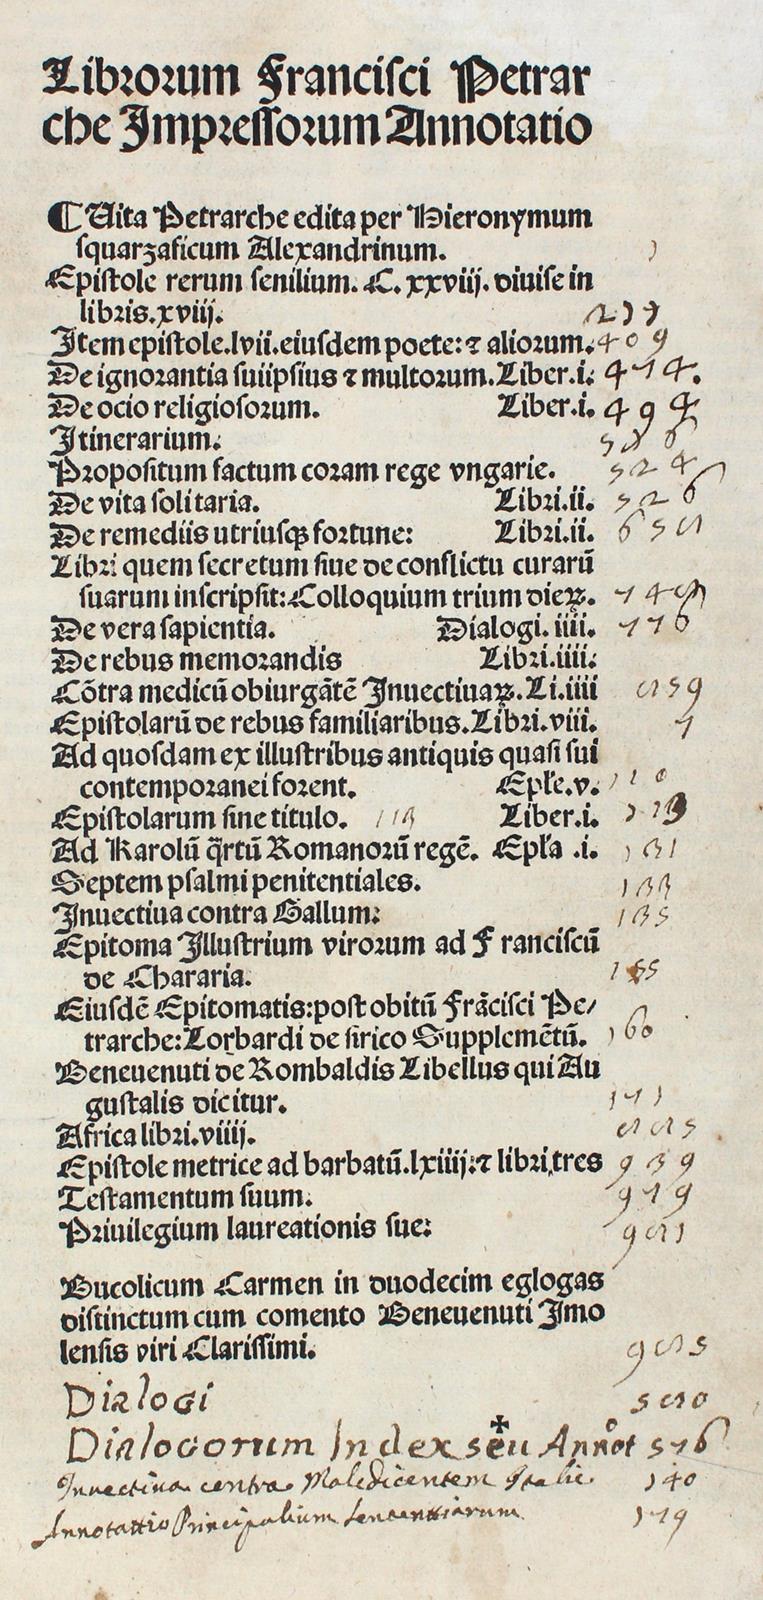 Librorum Francisci Petrar
che Impressorum Annotatio
¶ Uita Petrarche edita per Hieronymum
squarzaficum Alexandrinum. 1
Epistole rerum senilium. C.xxviij. diuise in
libris.xviij. 217
Item epistole.lvii.eiusdem poete: ⁊ aliorum. 409
De ignorantia suiipsius ⁊ multorum.Liber.i. 474.
De ocio religiosorum. Liber.i. 494
Itinerarium.
Propositum factum coram rege vngarie. 524
De vita solitaria. Libri.ii. 526
De remediis utriusqꝫ fortune: Libri.ii. 658
Libri quem secretum siue de conflictu curarū
suarum inscripsit: Colloquium trium dieꝝ. 748
De vera sapientia. Dialogi.iiii. 776
De rebus memorandis Libri.iiii.
Cōtra medicū obiurgātē Inuectiuaꝝ.Li.iiii 859
Epistolarū de rebus familiaribus.Libri.viii. 1
Ad quosdam ex illustribus antiquis quasi sui
contemporanei forent. Ep̄le.v. 110
Epistolarum sine titulo. 113 Liber.i.
Ad Karolū q̄rtū Romanorū regē. Ep̄la .i. 131
Septem psalmi penitentiales. 133
Inuectiua contra Gallum: 135
Epitoma Illustrium virorum ad Franciscū
de Chararia. 155
Eiusdē Epitomatis: post obitū Frācisci Pe/
trarche: Lorbardi de sirico Supplemētū. 160
Beneuenuti de Rombaldis Libellus qui Au
gustalis dicitur. 171
Africa libri.viiij. 885
Epistole metrice ad barbatū.lxiiij: ⁊ libri tres 939
Testamentum suum. 979
Priuilegium laureationis sue: 981
Bucolicum Carmen in duodecim eglogas
distinctum cum comento Beneuenuti Imo
lensis viri Clarissimi. 985
Dialogi 580
Dialogorum Index seu Annot 576
Inuectiua contra Maledicentem Italie 140
Annotattio Principalium Sententtiarum 179